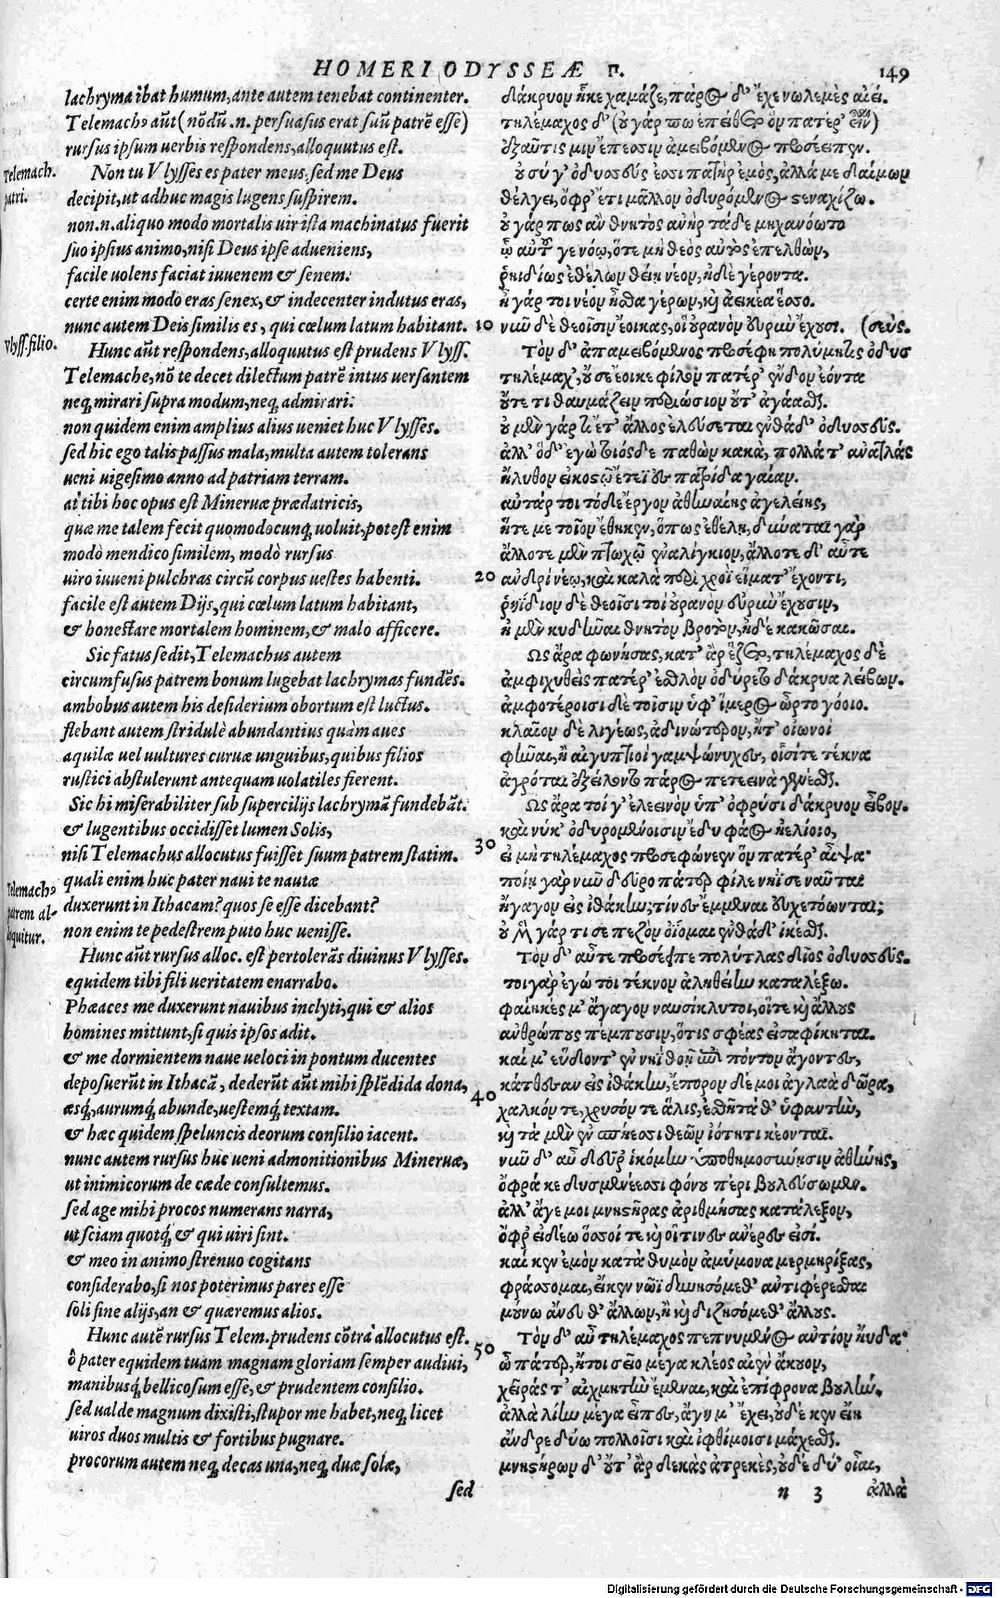 HOMERI ODYSSEÆ Π. 149
lachryma ibat humum, ante autem tenebat continenter.
Telemachꝰ aūt (nōdū .n. persuasus erat suū patrē esse)
rursus ipsum uerbis respondens, alloquutus est.
Telemach. patri.
Non tu Vlysses es pater meus, sed me Deus
decipit, ut adhuc magis lugens suspirem.
non .n. aliquo modo mortalis uir ista machinatus fuerit
suo ipsius animo, nisi Deus ipse adueniens,
facile uolens faciat iuuenem & senem:
certe enim modò eras senex, & indecenter indutus eras,
nunc autem Deis similis es, qui cœlum latum habitant. 10
Vlyss. filio.
Hunc aūt respondens, alloquutus est prudens Vlyss.
Telemache, nō te decet dilectum patrē intus uersantem
neq; mirari supra modum, neq; admirari:
non quidem enim amplius alius ueniet huc Vlysses.
sed hic ego talis passus mala, multa autem tolerans
ueni uigesimo anno ad patriam terram.
at tibi hoc opus est Mineruæ prædatricis,
quæ me talem fecit quomodocunq; uoluit, potest enim
modò mendico similem, modò rursus
uiro iuueni pulchras circū corpus uestes habenti. 20
facile est autem Dijs, qui cœlum latum habitant,
& honestare mortalem hominem, & malo afficere.
Sic fatus sedit, Telemachus autem
circumfusus patrem bonum lugebat lachrymas fundēs.
ambobus autem his desiderium obortum est luctus.
flebant autem stridulè abundantius quàm aues
aquilæ uel uultures curuæ unguibus, quibus filios
rustici abstulerunt antequam uolatiles fierent.
Sic hi miserabiliter sub supercilijs lachrymā fundebāt.
& lugentibus occidisset lumen Solis,
nisi Telemachus allocutus fuisset suum patrem statim. 30
Telemachꝰ patrem alloquitur.
quali enim huc pater naui te nautæ
duxerunt in Ithacam? quos se esse dicebant?
non enim te pedestrem puto huc uenisse.
Hunc aūt rursus alloc. est pertolerās diuinus Vlysses.
equidem tibi fili ueritatem enarrabo.
Phæaces me duxerunt nauibus inclyti, qui & alios
homines mittunt, si quis ipsos adit.
& me dormientem naue ueloci in pontum ducentes
deposuerūt in Ithacā, dederūt aūt mihi splēdida dona,
æsq;, aurumq; abunde, uestemq; textam. 40
& hæc quidem speluncis deorum consilio iacent.
nunc autem rursus huc ueni admonitionibus Mineruæ,
ut inimicorum de cæde consultemus.
sed age mihi procos numerans narra,
ut sciam quotq; & qui uiri sint.
& meo in animo strenuo cogitans
considerabo, si nos poterimus pares esse
soli sine alijs, an & quæremus alios.
Hunc autē rursus Telem. prudens cōtrà allocutus est.
ô pater equidem tuam magnam gloriam semper audiui, 50
manibusq; bellicosum esse, & prudentem consilio.
sed ualde magnum dixisti, stupor me habet, neq; licet
uiros duos multis & fortibus pugnare.
procorum autem neq; decas una, neq; duæ solæ,
sed
δάκρυον ἧκε χαμᾶζε, πάρος δ' ἔχε νωλεμὲς αἰεί.
τηλέμαχος δ' (οὐ γάρ πω ἐπείθετο ὃν πατέρ' εἶναι)
ἐξαῦτις μιν ἔπεσσιν ἀμειβόμενος προσέειπεν.
οὐ σύ γ' ὀδυσσεύς ἐσσι πατὴρ ἐμὸς, ἀλλά με δαίμων
θέλγει, ὄφρ' ἔτι μᾶλλον ὀδυρόμενος στεναχίζω.
οὐ γάρ πως ἂν θνητὸς ἀνὴρ τάδε μηχανόωτο
ᾧ αὐτοῦ γε νόῳ, ὅτε μὴ θεὸς αὐτὸς ἐπελθὼν,
ῥηιδίως ἐθέλων θείη νέον, ἠδὲ γέροντα.
ἦ γάρ τοι νέον ἦσθα γέρων, καὶ ἀεικέα ἕσσο.
νῦν δὲ θεοῖσιν ἔοικας, οἳ οὐρανὸν εὐρὺν ἔχουσι. (σεύς.
Τὸν δ' ἀπαμειβόμενος προσέφη πολύμητις ὀδυσ
τηλέμαχ', οὔ σε ἔοικε φίλον πατέρ' ἔνδον ἐόντα
οὔτέ τι θαυμάζειν περιώσιον οὔτ' ἀγάασθαι.
οὐ μὲν γάρ τοι ἔτ' ἄλλος ἐλεύσεται ἐνθάδ' ὀδυσσεύς.
ἀλλ' ὅδ' ἐγὼ τοιόσδε παθὼν κακὰ, πολλὰ τ' ἀνατλὰς
ἤλυθον εἰκοστῷ ἔτεϊ ἐς πατρίδα γαῖαν.
αὐτάρ τοι τόδε ἔργον ἀθηναίης ἀγελείης,
ἥτε με τοῖον ἔθηκεν, ὅπως ἐθέλει, δύναται γὰρ
ἄλλοτε μὲν πτωχῷ ἐναλίγκιον, ἄλλοτε δ' αὖτε
ἀνδρὶ νέῳ, καὶ καλὰ περὶ χροῒ εἵματ' ἔχοντι,
ῥηΐδιον δὲ θεοῖσι τοὶ οὐρανὸν εὐρὺν ἔχουσιν,
ἠ μὲν κυδῆναι θνητὸν βροτὸν, ἠδὲ κακῶσαι.
Ως ἄρα φωνήσας, κατ' ἄρ ἕζετο, τηλέμαχος δὲ
ἀμφιχυθεὶς πατέρ' ἐσθλὸν ὀδύρετο δάκρυα λείβων.
ἀμφοτέροισι δὲ τοῖσιν ὑφ' ἵμερος ὦρτο γόοιο.
κλαῖον δὲ λιγέως, ἀδινώτερον, ἤτ' οἰωνοὶ
φῆναι, ἢ αἰγυπιοὶ γαμψώνυχες, οἷσίτε τέκνα
ἀγρόται ἐξείλοντο πάρος πετεεινὰ γενέσθαι.
Ως ἄρα τοί γ' ἐλεεινὸν ὑπ' ὀφρύσι δάκρυον εἶβον.
καὶ νύκ' ὀδυρομένοισιν ἔδυ φάος ἠελίοιο,
εἰ μὴ τηλέμαχος προσεφώνεεν ὃν πατέρ' αἶψα·
ποίῃ γὰρ νῦν δεῦρο πάτερ φίλε νηΐ σε ναῦται
ἤγαγον εἰς ἰθάκην; τίνες ἔμμεναι εὐχετόωνται;
οὐ μὲν γάρ τι σε πεζὸν ὀΐομαι ἐνθάδ' ἱκέσθαι.
Τὸν δ' αὖτε προσέειπε πολύτλας δῖος ὀδυσσεύς.
τοιγὰρ ἐγώ τοι τέκνον ἀληθείην καταλέξω.
φαίηκές μ' ἄγαγον ναυσίκλυτοι, οἵτε καὶ ἄλλους
ἀνθρώπους πέμπουσιν, ὅτις σφέας εἰσαφίκηται.
καί μ' εὕδοντ' ἐν νηῒ θοῇ ἐπὶ πόντον ἄγοντες,
κάτθεσαν εἰς ἰθάκην, ἔπορον δέ μοι ἀγλαὰ δῶρα,
χαλκόν τε, χρυσόν τε ἅλις, ἐσθῆτά θ' ὑφαντὴν,
καὶ τὰ μὲν ἐν σπήεσσι θεῶν ἰότητι κέονται.
νῦν δ' αὖ δεῦρ' ἱκόμην ὑποθημοσύνησιν ἀθήνης,
ὄφρά κε δυσμενέεσσι φόνου πέρι βουλεύσωμεν.
ἀλλ' ἄγε μοι μνηστῆρας ἀριθμήσας κατάλεξον,
ὄφρ' εἰδέω ὅσσοί τε καὶ οἵτινες ἀνέρες εἰσί.
καί κεν ἐμὸν κατὰ θυμὸν ἀμύμονα μερμηρίξας,
φράσσομαι, εἴ κεν νῶϊ δυνησόμεθ' ἀντιφέρεσθαι
μούνω ἄνευθ' ἄλλων, ἢ καὶ διζησόμεθ' ἄλλους.
Τὸν δ' αὖ τηλέμαχος πεπνυμένος ἀντίον ηὔδα·
ὦ πάτερ, ἤτοι σεῖο μέγα κλέος αἰὲν ἄκουον,
χεῖράς τ' αἰχμητὴν ἔμεναι, καὶ ἐπίφρονα βουλήν.
ἀλλὰ λίην μέγα εἶπες, ἄγη μ' ἔχει, οὐδέ κεν εἴη
ἄνδρε δύω πολλοῖσι καὶ ἰφθίμοισι μάχεσθαι.
μνηστήρων δ' οὔτ' ἂρ δεκὰς ἀτρεκὲς, οὐδὲ δύ' οἶαι,
n 3 ἀλλὰ
Digitalisierung gefördert durch die Deutsche Forschungsgemeinschaft - DFG